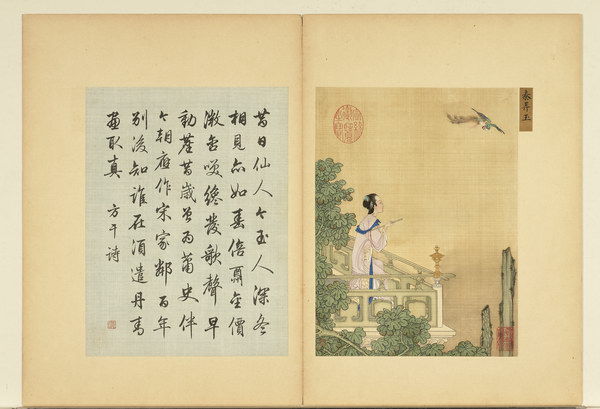 昔日仙人今玉人深冬
相見亦如春倍酬金價
微含笑纔發歌聲早
動塵昔歲曾為蕭史伴
今朝應作宋家鄰百年
別後知誰在須遣丹青
畫取真
方干詩
秦弄玉